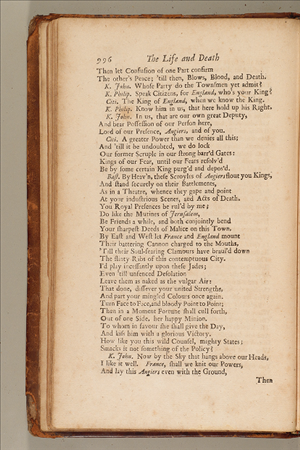 996 The Life and Death
Then let Confusion of one Part confirm
The other's Peace; 'till then, Blows, Blood, and Death.
K. John. Whose Party do the Townsmen yet admit?
K. Philip. Speak Citizens, for England, who's your King?
Cit. The King of England, when we know the King.
K. Philip. Know him in us, that here hold up his Right.
K. John. In us, that are our own great Deputy,
And bear Possession of our Person here,
Lord of our Presence, Angiers, and of you.
Cit. A greater Power than We denies all this;
And 'till it be undoubted, we do lock
Our former Scruple in our strong barr'd Gates:
Kings of our Fear, until our Fears resolv'd
Be by some certain King purg'd and depos'd.
Bast. By Heav'n, these Scroyles of Angiers flout you Kings,
And stand securely on their Battlements,
As in a Theatre, whence they gape and point
At your industrious Scenes, and Acts of Death.
You Royal Presences be rul'd by me;
Do like the Mutines of Jerusalem,
Be Friends a while, and both conjointly bend
Your sharpest Deeds of Malice on this Town.
By East and West let France and England mount
Their battering Cannon charged to the Mouths,
'Till their Soul-fearing Clamours have braul'd down
The flinty Ribs of this contemptuous City.
I'd play incessantly upon these Jades;
Even 'till unfenced Desolation
Leave them as naked as the vulgar Air:
That done, dissever your united Strengths,
And part your mingled Colours once again.
Turn Face to Face, and bloody Point to Point;
Then in a Moment Fortune shall cull forth,
Out of one Side, her happy Minion,
To whom in favour she shall give the Day,
And kiss him with a glorious Victory.
How like you this wild Counsel, mighty States?
Smacks it not something of the Policy?
K. John. Now by the Sky that hangs above our Heads,
I like it well. France, shall we knit our Powers,
And lay this Angiers even with the Ground,
Then